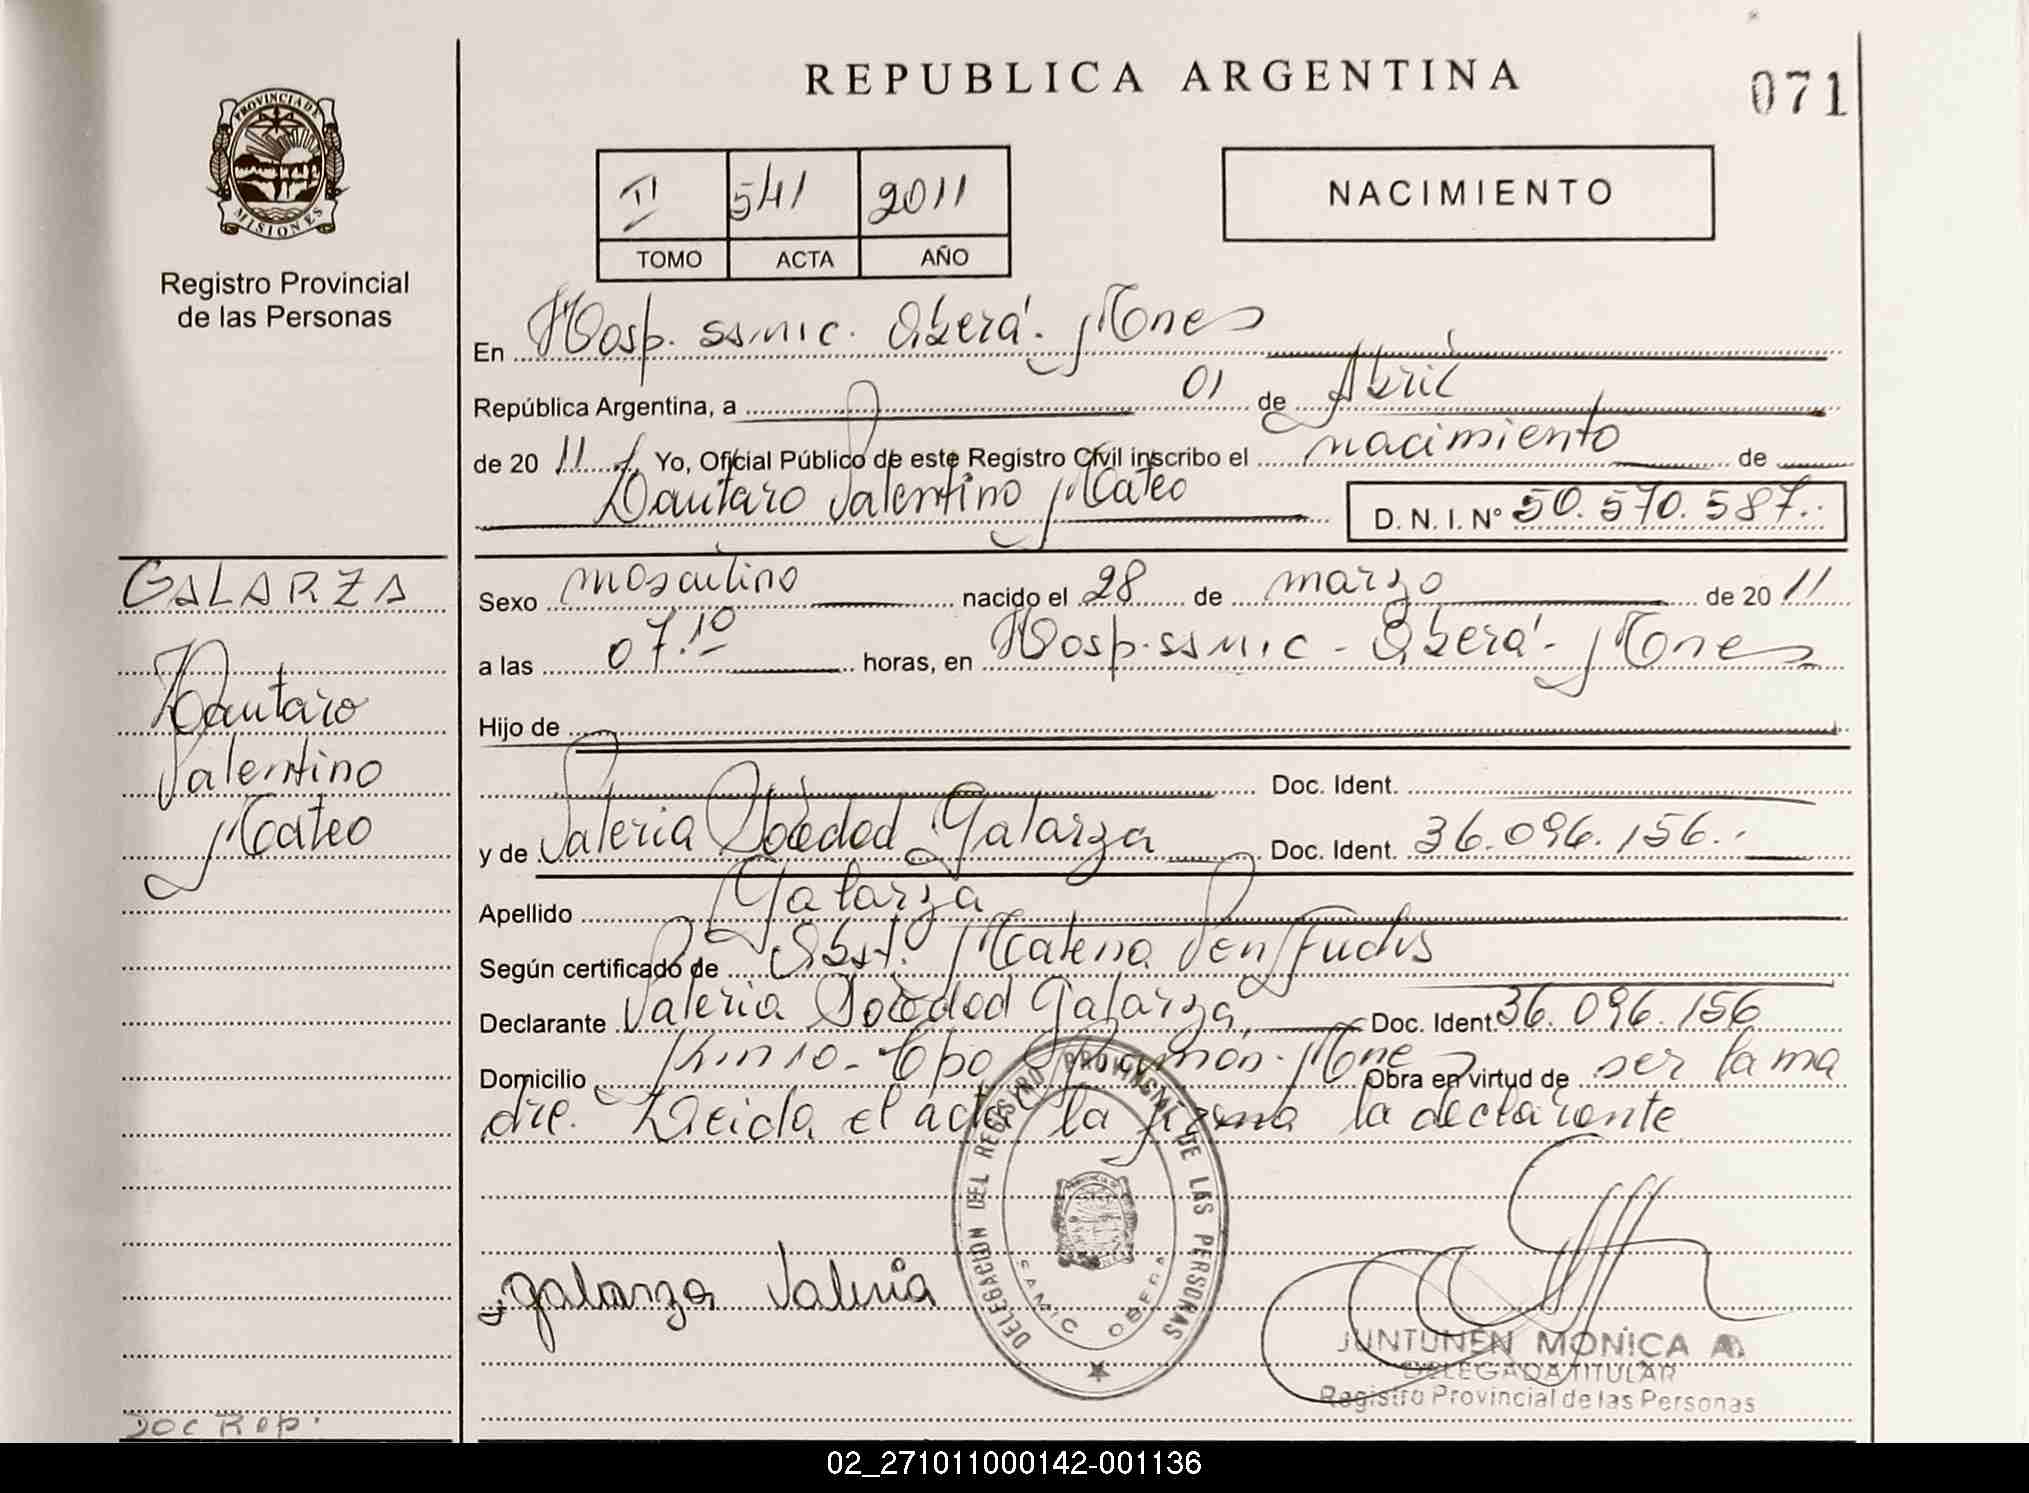 REPUBLICA ARGENTINA
071
PROVINCIA DE
MISIONES
Registro Provincial
de las Personas
II 541 2011
TOMO ACTA AÑO
NACIMIENTO
En Hosp. ssmic. Oberá. Mnes
República Argentina, a 01 de Abril
de 20 11 Yo, Oficial Público de este Registro Civil inscribo el nacimiento de
Lautaro Valentino Mateo D. N. I. N° 50.570.587.
GALARZA
Lautaro
Valentino
Mateo
Sexo masculino nacido el 28 de marzo de 20 11
a las 07.10 horas, en Hosp. ssmic - Oberá - Mnes
Hijo de
Doc. Ident.
y de Valeria Soledad Galarza Doc. Ident. 36.096.156.
Apellido Galarza
Según certificado de Obst.
Declarante Valeria Soledad Galarza, Doc. Ident 36.096.156
Domicilio Km 10 - Cpo Ramón - Mnes Obra en virtud de ser la ma
dre. Leida el acta la firma la declarante
DELEGACION DEL REGISTRO PROVINCIAL DE LAS PERSONAS
SAMIC OBERA
galarza Valeria
JUNTUNEN MONICA A.
DELEGADA TITULAR
Registro Provincial de las Personas
DOC Rep.
02_271011000142-001136